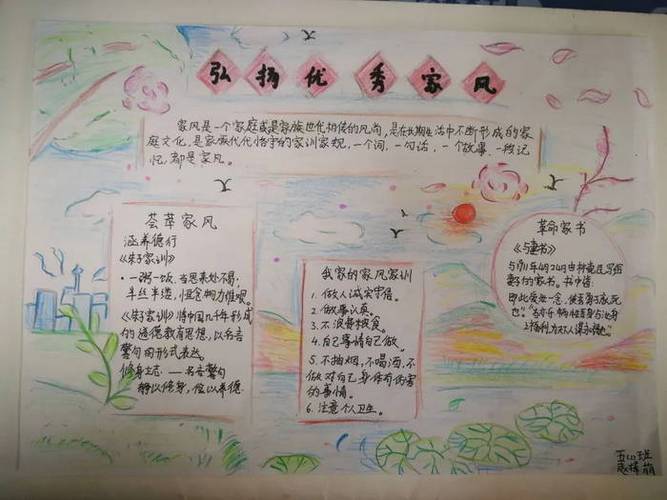 弘扬优秀家风
家风是一个家庭或是家族世代相传的风尚,是在长期生活中不断形成的家
庭文化,是家族代代恪守的家训家规,一个词,一句话,一个故事,一段记
忆,都是家风。
荟萃家风
涵养德行
《朱子家训》
·一粥一饭,当思来处不易;
半丝半缕,恒念物力维艰。
《朱子家训》将中国几千年形成
的道德教育思想,以名言
警句的形式表达
修身立志——名言警句
静以修身,俭以养德
我家的家风家训
1.做人诚实守信。
2.做事认真。
3.不浪费粮食。
4.自己事情自己做。
5.不抽烟,不喝酒,不
做对自己身体有伤害
的事情。
6.注意个人卫生。
革命家书
《与妻书》
与1911年4月24日由林觉民写给
妻子的家书。书中借
即此爱汝一念,使吾勇于就死
也"
五(1)班